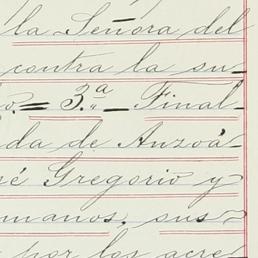 la Señora del
contra la su-
o.= 3.ª — Final-
da de Anzoá-
sé Gregorio y
manos, sus
por los acre-